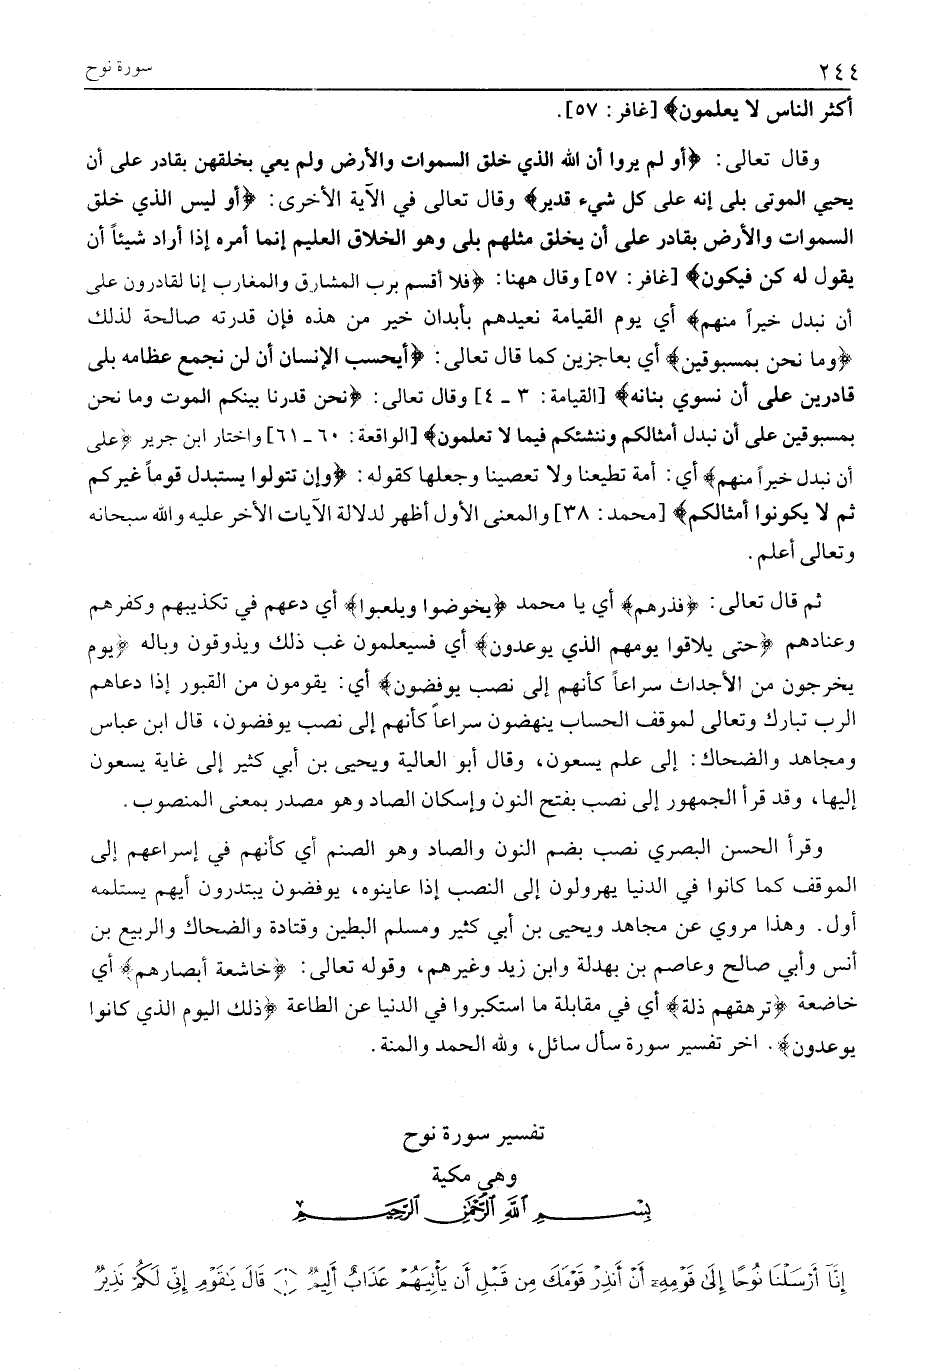 ٢٤٤
سورة نوح
أكثر الناس لا يعلمون﴾ [غافر: ٥٧].
وقال تعالى: ﴿أو لم يروا أن الله الذي خلق السموات والأرض ولم يعي بخلقهن بقادر على أن
يحيي الموتى بلى إنه على كل شيء قدير﴾ وقال تعالى في الآية الأخرى: ﴿أو ليس الذي خلق
السموات والأرض بقادر على أن يخلق مثلهم بلى وهو الخلاق العليم إنما أمره إذا أراد شيئاً أن
يقول له كن فيكون﴾ [غافر: ٥٧] وقال ههنا: ﴿فلا أقسم برب المشارق والمغارب إنا لقادرون على
أن نبدل خيراً منهم﴾ أي يوم القيامة نعيدهم بأبدان خير من هذه فإن قدرته صالحة لذلك
﴿وما نحن بمسبوقين﴾ أي بعاجزين كما قال تعالى: ﴿أيحسب الإنسان أن لن نجمع عظامه بلى
قادرين على أن نسوي بنانه﴾ [القيامة: ٣ ـ ٤] وقال تعالى: ﴿نحن قدرنا بينكم الموت وما نحن
بمسبوقين على أن نبدل أمثالكم وننشئكم فيما لا تعلمون﴾ [الواقعة: ٦٠ ـ ٦١] واختار ابن جرير ﴿على
أن نبدل خيراً منهم﴾ أي: أمة تطيعنا ولا تعصينا وجعلها كقوله: ﴿وإن تتولوا يستبدل قوماً غيركم
ثم لا يكونوا أمثالكم﴾ [محمد: ٣٨] والمعنى الأول أظهر لدلالة الآيات الأخر عليه والله سبحانه
وتعالى أعلم.
ثم قال تعالى: ﴿فذرهم﴾ أي يا محمد ﴿يخوضوا ويلعبوا﴾ أي دعهم في تكذيبهم وكفرهم
وعنادهم ﴿حتى يلاقوا يومهم الذي يوعدون﴾ أي فسيعلمون غب ذلك ويذوقون وباله ﴿يوم
يخرجون من الأجداث سراعاً كأنهم إلى نصب يوفضون﴾ أي: يقومون من القبور إذا دعاهم
الرب تبارك وتعالى لموقف الحساب ينهضون سراعاً كأنهم إلى نصب يوفضون، قال ابن عباس
ومجاهد والضحاك: إلى علم يسعون، وقال أبو العالية ويحيى بن أبي كثير إلى غاية يسعون
إليها، وقد قرأ الجمهور إلى نصب بفتح النون وإسكان الصاد وهو مصدر بمعنى المنصوب.
وقرأ الحسن البصري نصب بضم النون والصاد وهو الصنم أي كأنهم في إسراعهم إلى
الموقف كما كانوا في الدنيا يهرولون إلى النصب إذا عاينوه، يوفضون يبتدرون أيهم يستلمه
أول. وهذا مروي عن مجاهد ويحيى بن أبي كثير ومسلم البطين وقتادة والضحاك والربيع بن
أنس وأبي صالح وعاصم بن بهدلة وابن زيد وغيرهم، وقوله تعالى: ﴿خاشعة أبصارهم﴾ أي
خاضعة ﴿ترهقهم ذلة﴾ أي في مقابلة ما استكبروا في الدنيا عن الطاعة ﴿ذلك اليوم الذي كانوا
يوعدون﴾. اخر تفسير سورة سأل سائل، ولله الحمد والمنة.
تفسير سورة نوح
وهي مكية
بِسْمِ ٱللَّهِ ٱلرَّحْمَٰنِ ٱلرَّحِيمِ
إِنَّآ أَرْسَلْنَا نُوحًا إِلَىٰ قَوْمِهِۦٓ أَنْ أَنذِرْ قَوْمَكَ مِن قَبْلِ أَن يَأْتِيَهُمْ عَذَابٌ أَلِيمٌ ﴿١﴾ قَالَ يَٰقَوْمِ إِنِّي لَكُمْ نَذِيرٌ